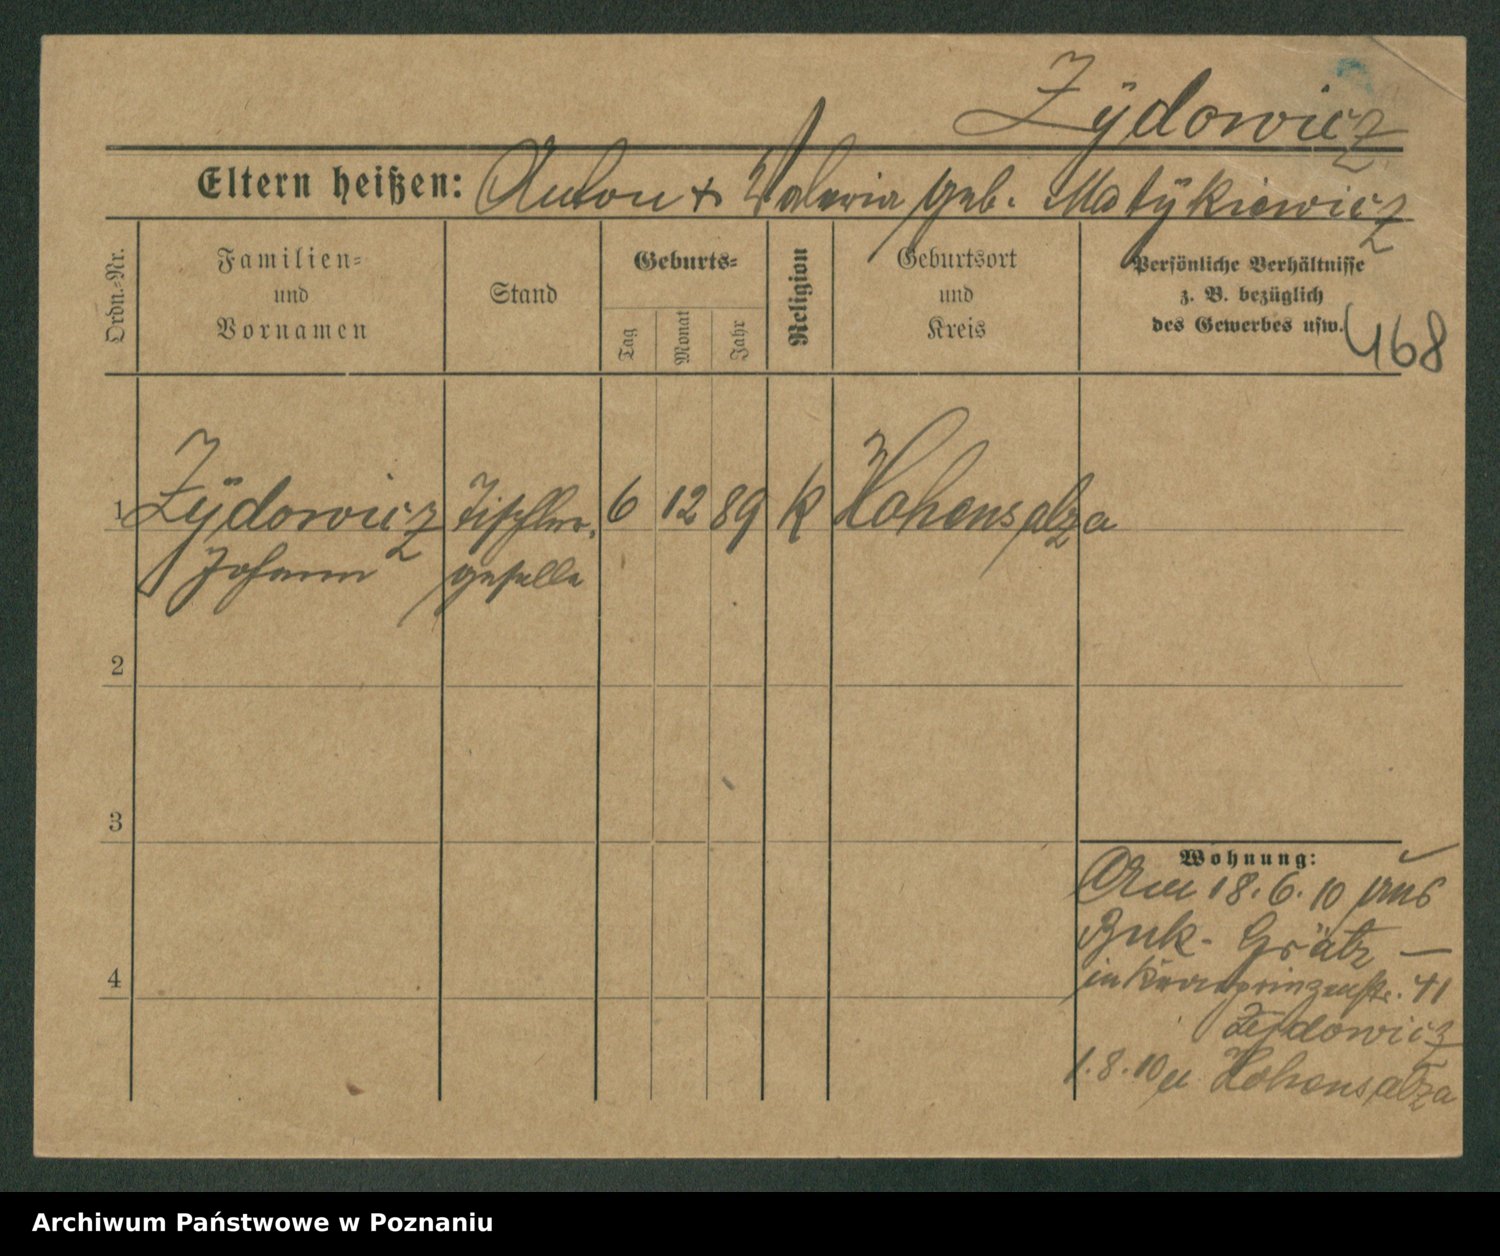 Zÿdowicz
Eltern heißen: Anton + Valeria geb. Matÿkiewicz
Ordn.-Nr.
Familien-
und
Vornamen
Stand
Geburts-
Tag
Monat
Jahr
Religion
Geburtsort
und
Kreis
Persönliche Verhältnisse
z. B. bezüglich
des Gewerbes usw.
468
1 Zÿdowicz Tischler- 6 12 89 K Hohensalza
Johann geselle
2
3
4
Wohnung:
Am 18.6.10 aus
Buk - Grätz —
in Kronprinzenstr. 41
Zydowicz
1.8.10 n Hohensalza
Archiwum Państwowe w Poznaniu